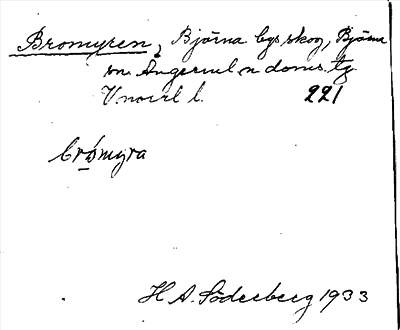 Bromyren, Björna bys skog, Björna
sn. Ångerml n doms. tg.
V 221
bromyra
H A. Söderberg 1933